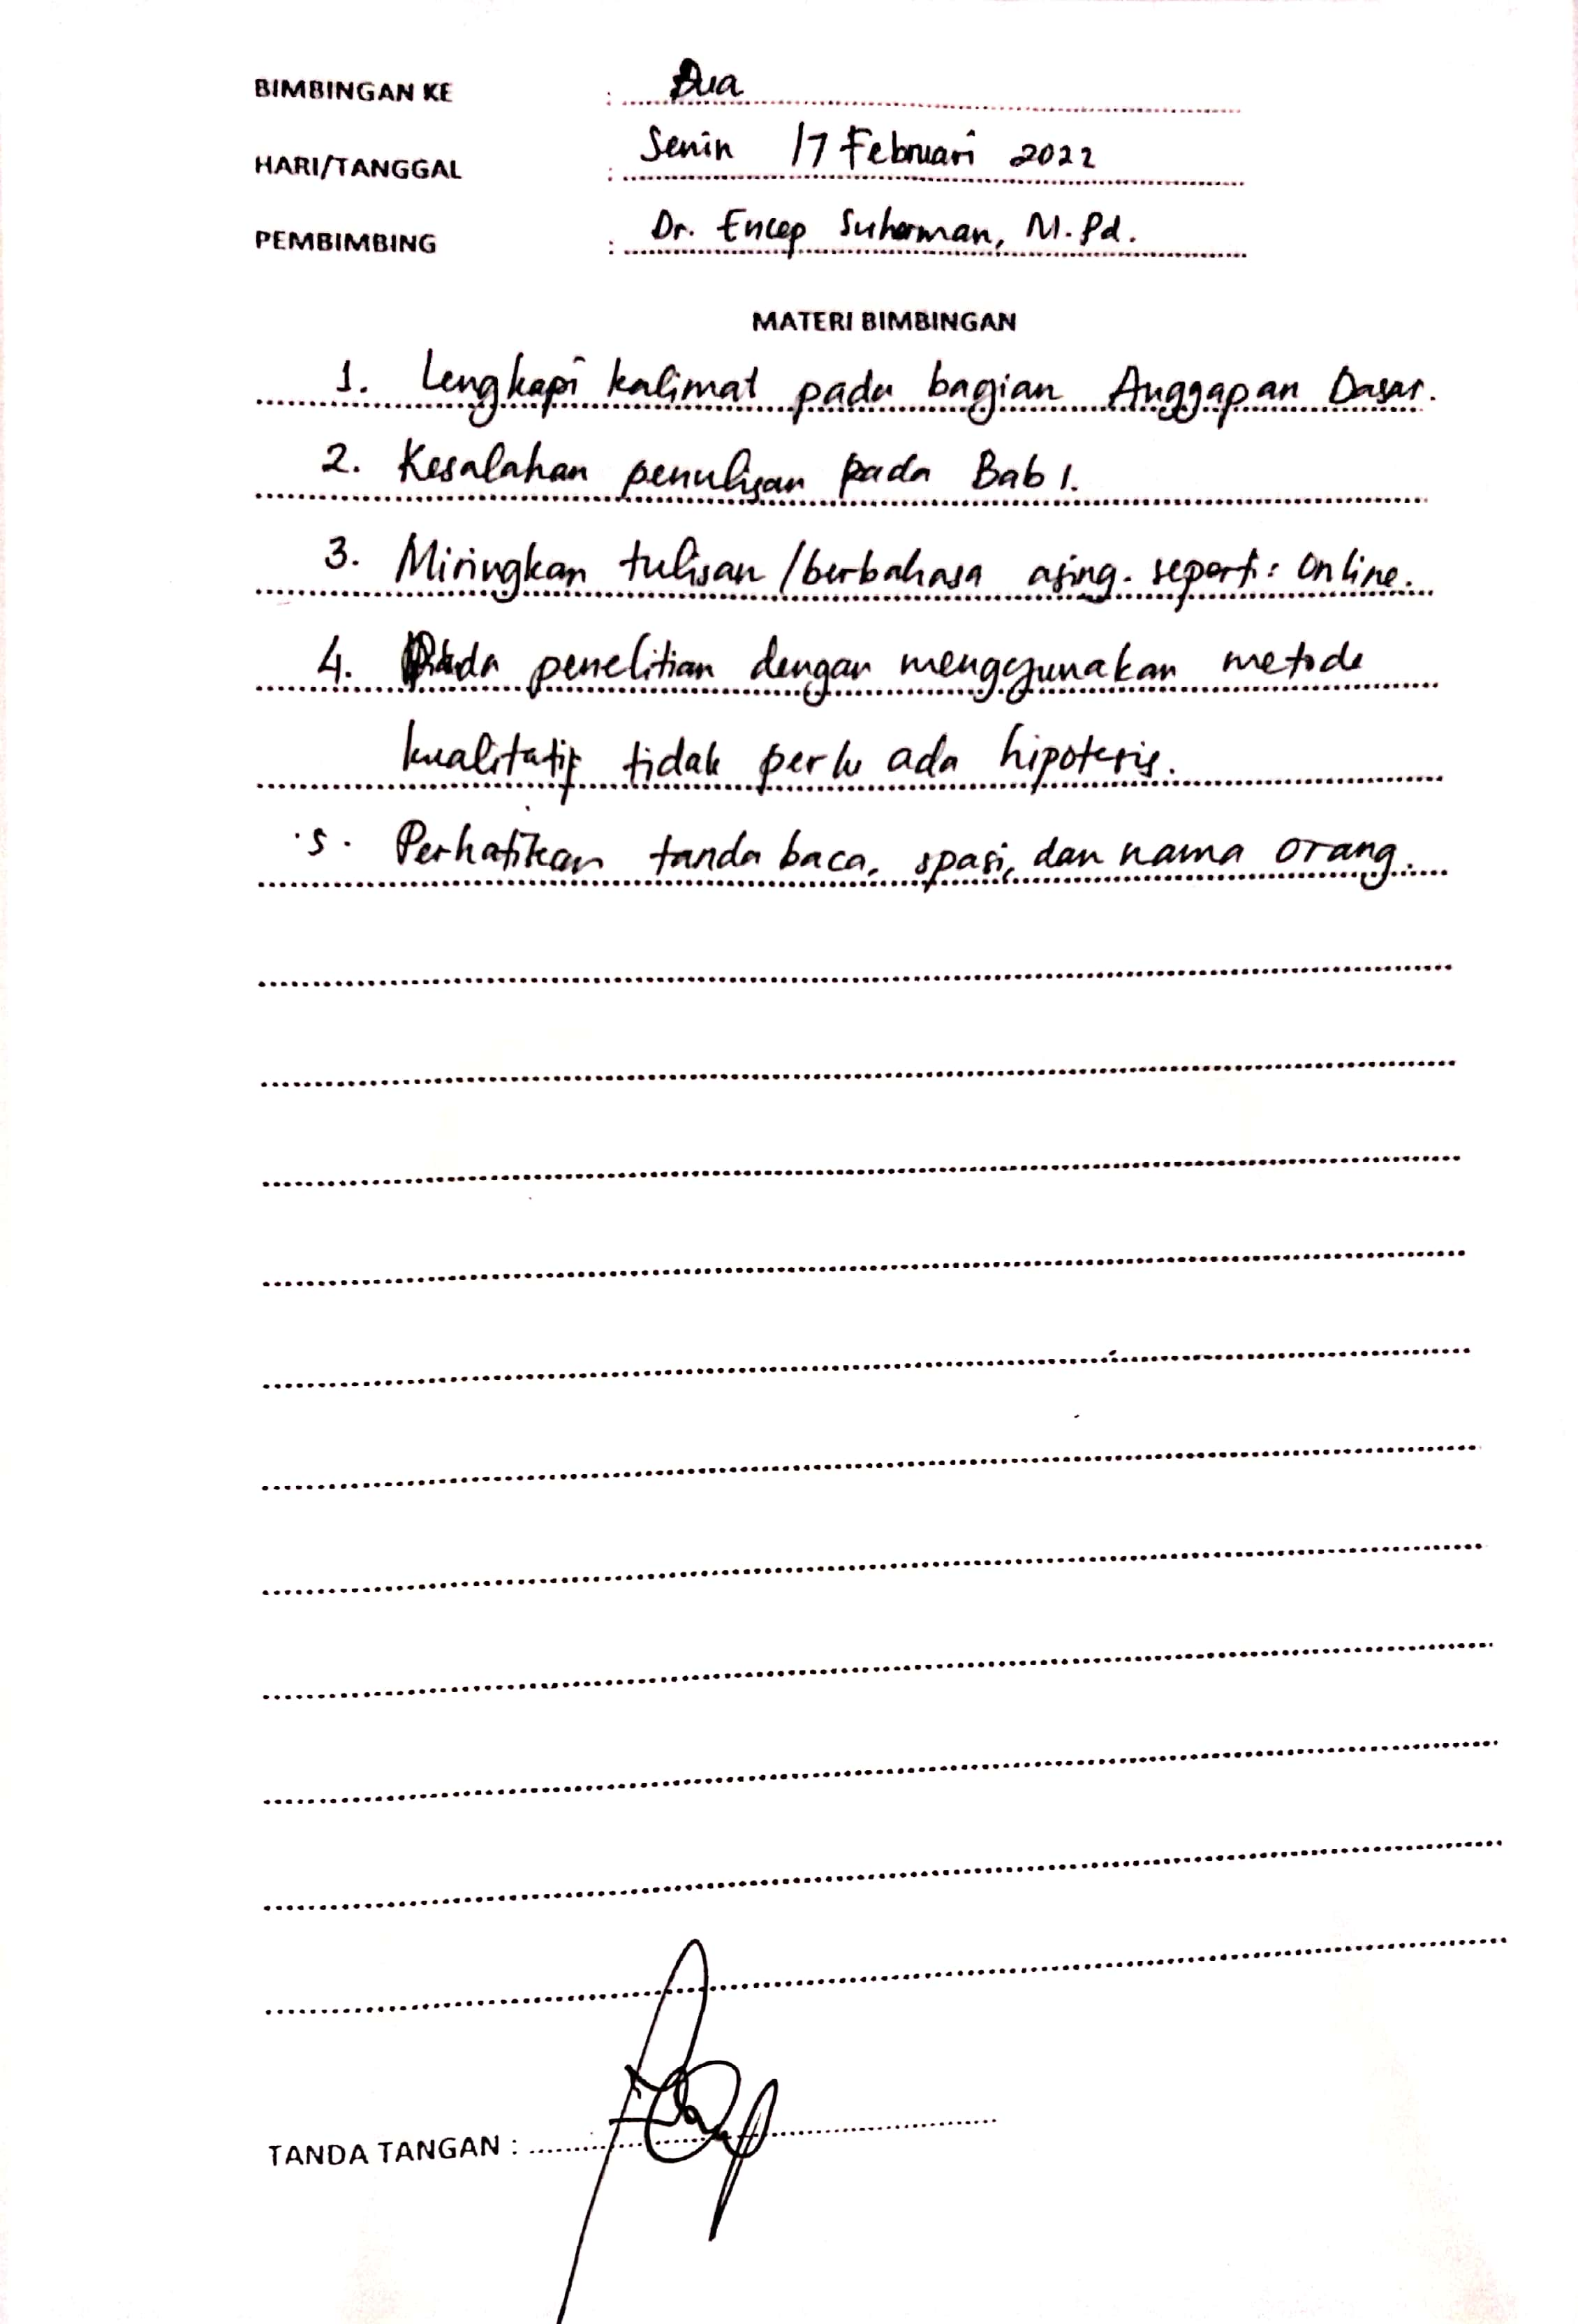 BIMBINGAN KE : Dua
HARI/TANGGAL : Senin 17 Februari 2022
PEMBIMBING : Dr. Encep Suherman, M.Pd.
MATERI BIMBINGAN
1. Lengkapi kalimat pada bagian Anggapan Dasar.
2. Kesalahan penulisan pada Bab 1.
3. Miringkan tulisan /berbahasa asing. seperti: Online.
4. Pada penelitian dengan menggunakan metode
kualitatif tidak perlu ada hipotesis.
5. Perhatikan tanda baca, spasi, dan nama orang.
TANDA TANGAN :